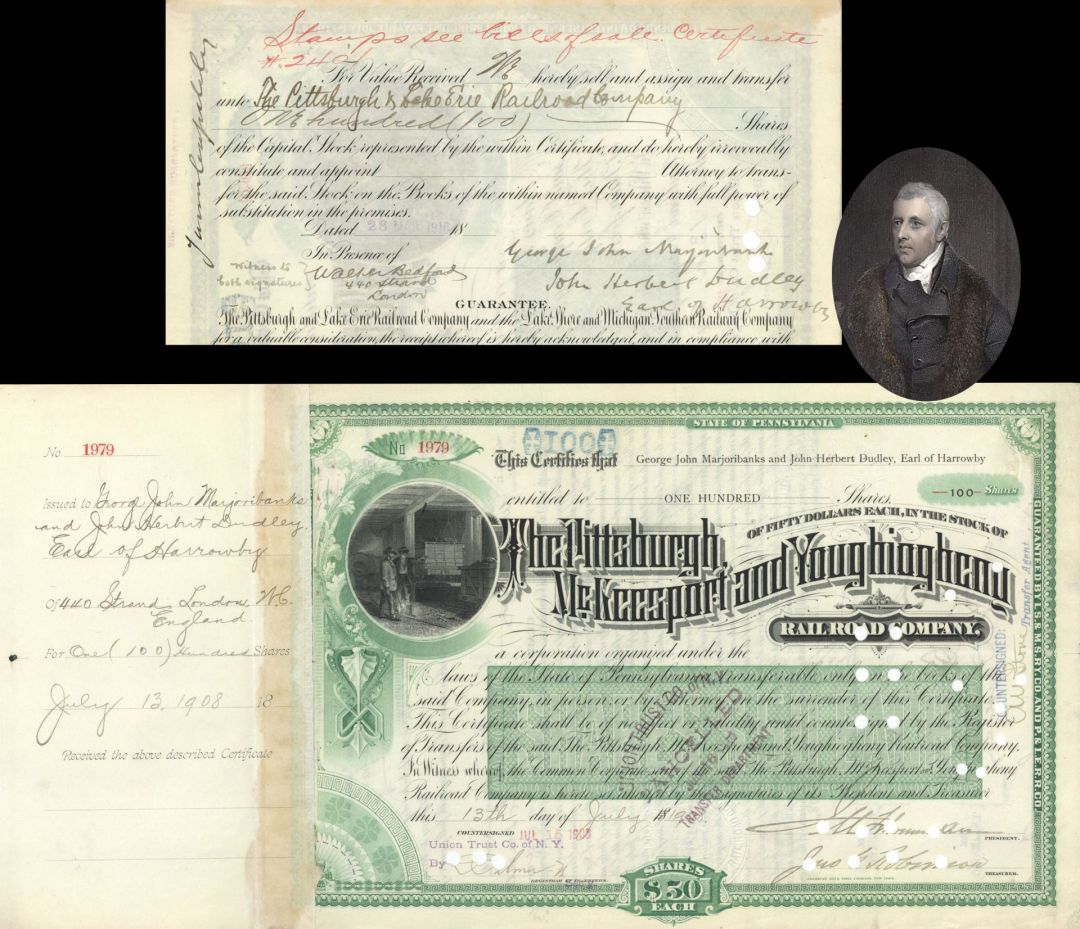 Stamps see bills of sale Certificate
For Value Received We hereby sell and assign and transfer
unto The Pittsburgh & Lake Erie Railroad Company
One hundred (100) Shares
of the Capital Stock represented by the within Certificate, and do hereby irrevocably
constitute and appoint Attorney to trans-
fer the said Stock on the Books of the within named Company with full power of
substitution in the premises.
Dated 28 1910 18
In Presence of
George John Marjoribanks
Witness to
both signatures
Walter Bedford
440 Strand
London
John Herbert Dudley
Earl of Harrowby
GUARANTEE.
The Pittsburgh and Lake Erie Railroad Company and the Lake Shore and Michigan Southern Railway Company
for a valuable consideration, the receipt whereof is hereby acknowledged, and in compliance with
No 1979
Issued to George John Marjoribanks
and John Herbert Dudley,
Earl of Harrowby
Of 440 Strand London, W.C.
England
For One (100) Hundred Shares
July 13, 1908 18
Received the above described Certificate
STATE OF PENNSYLVANIA
No 1979
100
This Certifies that George John Marjoribanks and John Herbert Dudley, Earl of Harrowby
entitled to ONE HUNDRED Shares
—100— Shares
OF FIFTY DOLLARS EACH, IN THE STOCK OF
The Pittsburgh,
McKeesport and Youghiogheny
RAILROAD COMPANY,
a corporation organized under the
laws of the State of Pennsylvania, transferable only on the books of the
said Company, in person or by attorney on the surrender of this Certificate.
This Certificate shall be of no effect or validity until countersigned by the Registrar
of Transfers of the said The Pittsburgh, McKeesport and Youghiogheny Railroad Company.
In Witness whereof, the Common Corporate seal of the said The Pittsburgh, McKeesport and Youghiogheny
Railroad Company is hereto affixed by the signatures of its President and Treasurer
this 13th day of July 1908
UNION TRUST CO. OF N.Y.
CANCELLED
TRANSFER DEPARTMENT
COUNTERSIGNED JUL 15 1908
Union Trust Co. of N. Y.
By
REGISTRAR OF TRANSFERS.
PRESIDENT.
TREASURER.
SHARES
$50
EACH
COUNTERSIGNED:
Transfer Agent
GUARANTEED BY L.S.& M.S.RY.CO. AND P.& L.E.R.R.CO.